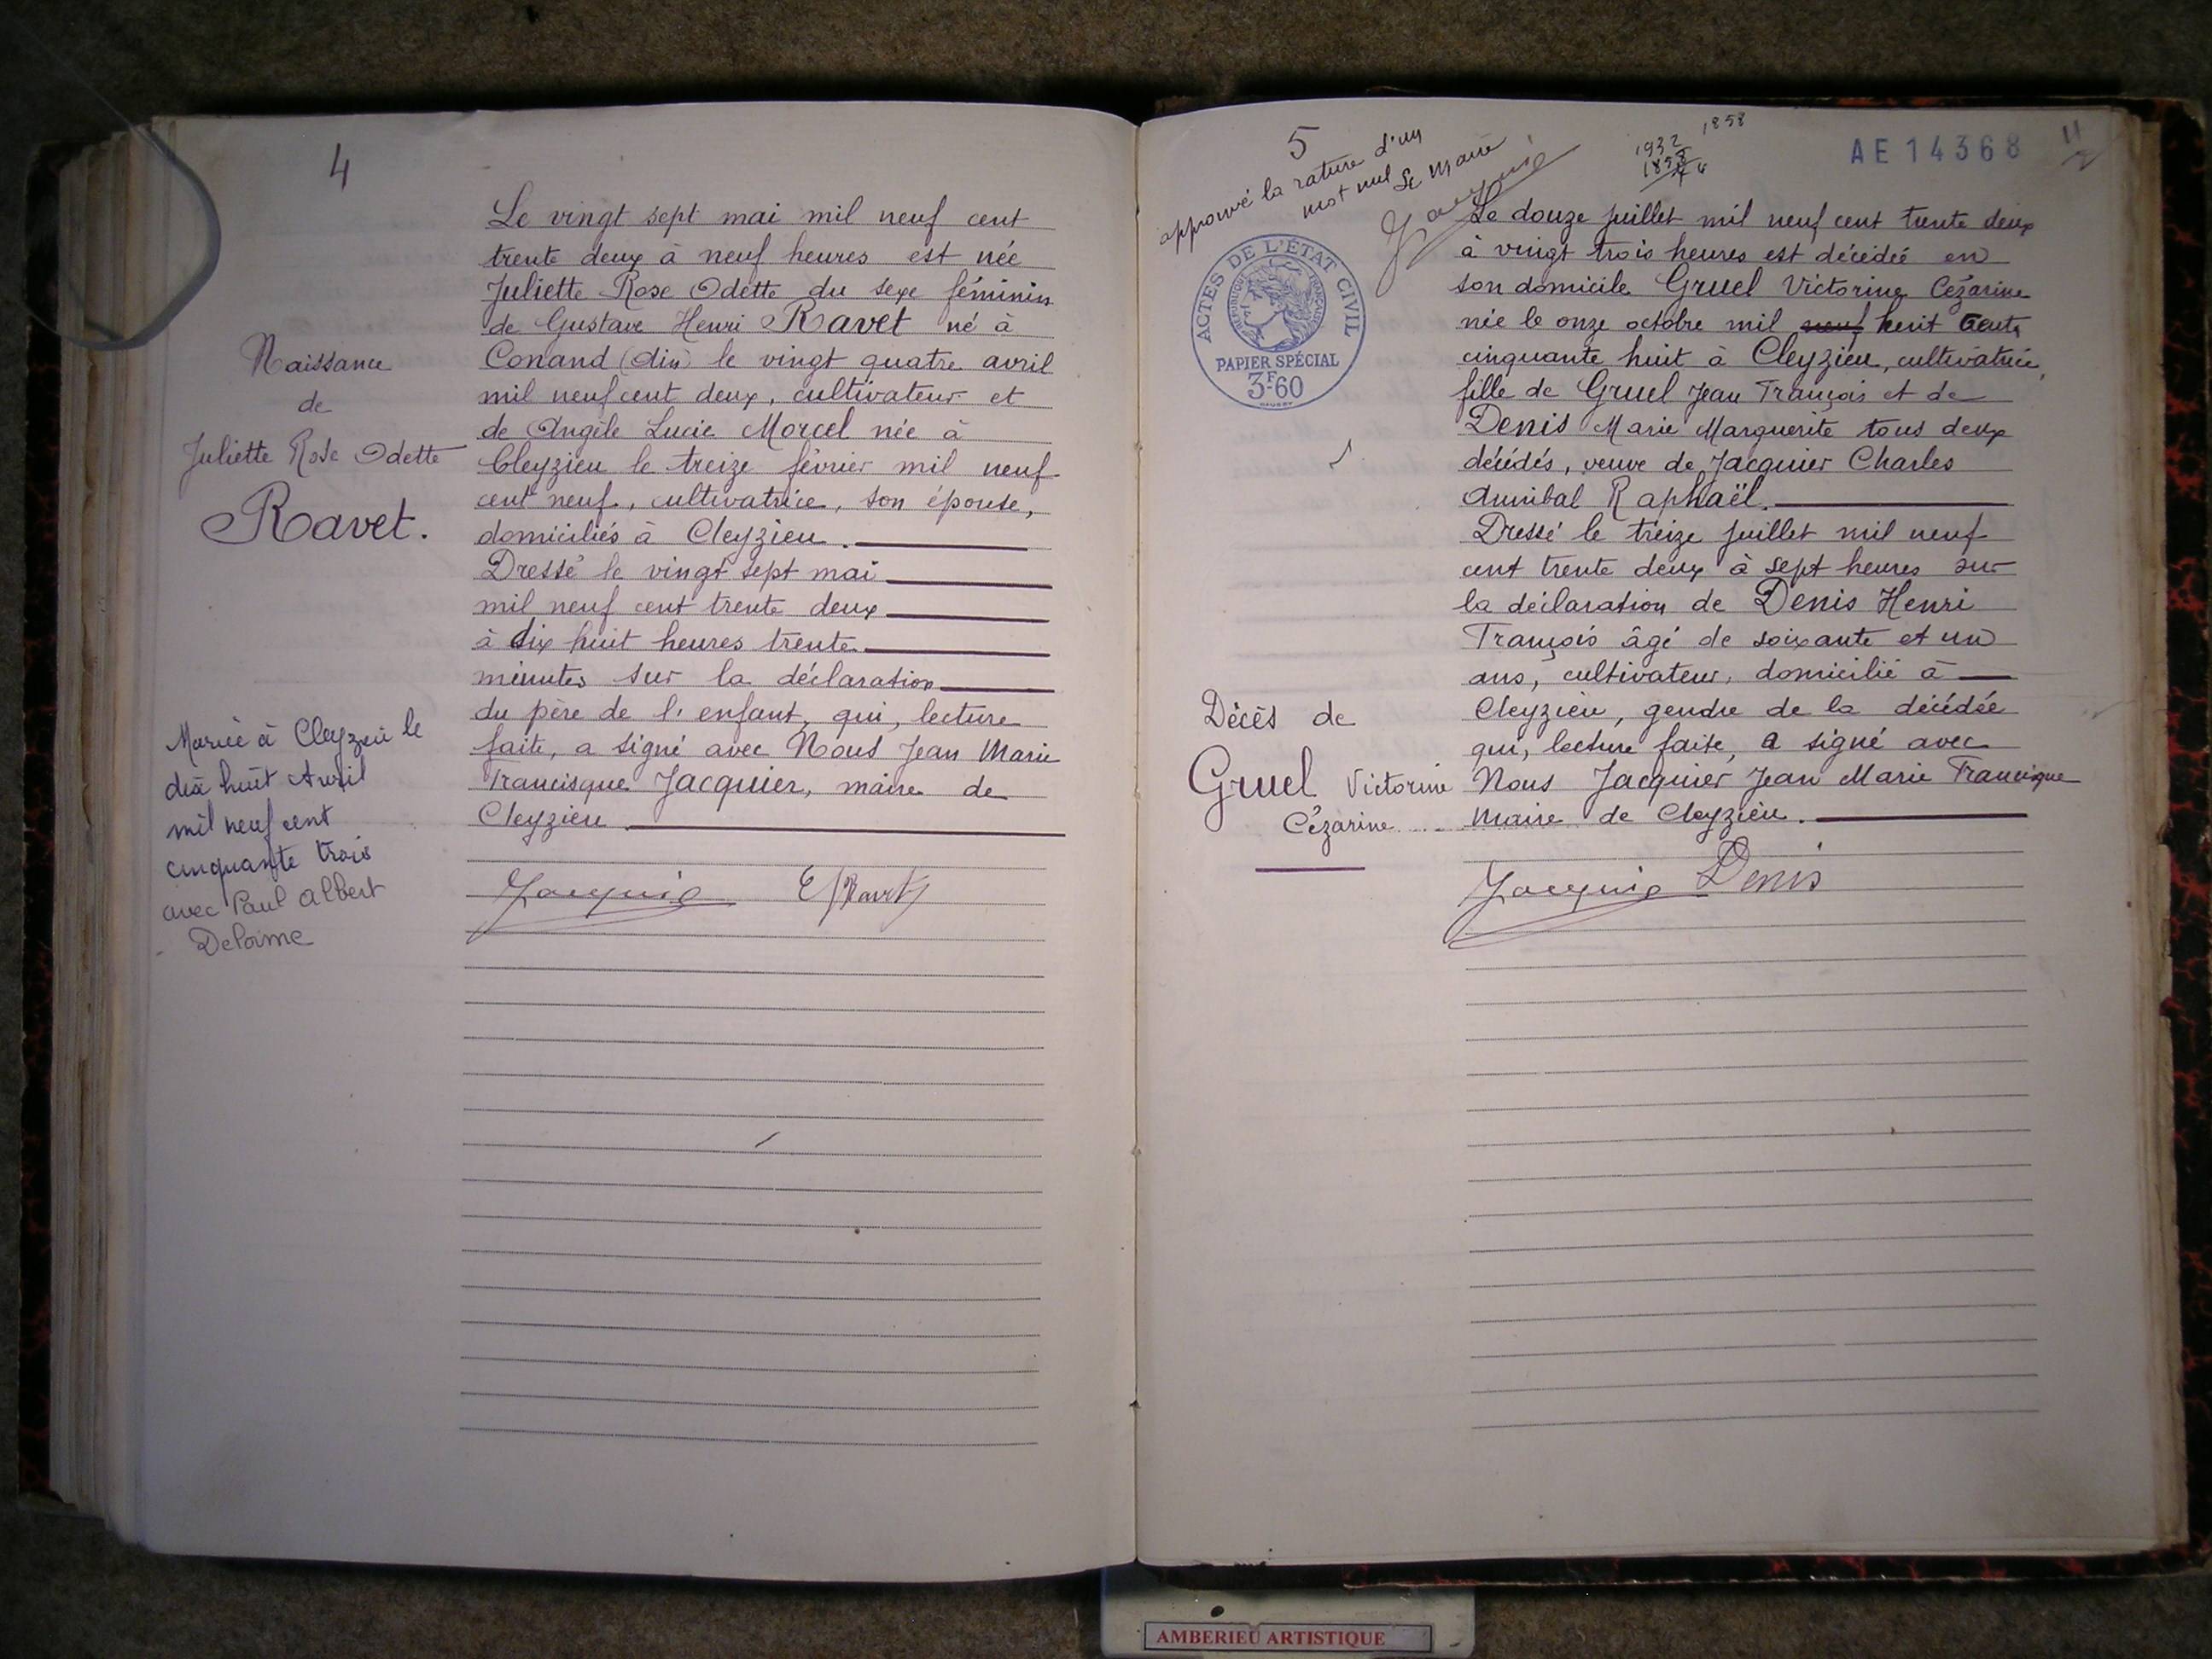 4
Le vingt sept mai mil neuf cent
trente deux à neuf heures est née
Juliette Rose Odette du sexe féminin
de Gustave Henri Ravet né à
Conand (Ain) le vingt quatre avril
mil neuf cent deux, cultivateur et
de Angèle Lucie Morcel née à
Cleyzieu le treize février mil neuf
cent neuf, cultivatrice, son épouse,
domiciliés à Cleyzieu.
Dressé le vingt sept mai
mil neuf cent trente deux
à dix huit heures trente
minutes sur la déclaration
du père de l'enfant, qui, lecture
faite, a signé avec Nous Jean Marie
Francisque Jacquier, maire de
Cleyzieu
Jacquier Ravet
Naissance
de
Juliette Rose Odette
Ravet.
Mariée à Cleyzieu le
dix huit Avril
mil neuf cent
cinquante trois
avec Paul Albert
Delorme
5
approuvé la rature d'un
mot nul Le Maire
Jacquier
1858
1932
AE 14368
ACTES DE L'ÉTAT CIVIL
RÉPUBLIQUE FRANÇAISE
PAPIER SPÉCIAL
3F60
Le douze juillet mil neuf cent trente deux
à vingt trois heures est décédée en
son domicile Gruel Victorine Cézarine
née le onze octobre mil neuf huit cent
cinquante huit à Cleyzieu, cultivatrice,
fille de Gruel Jean François et de
Denis Marie Marguerite tous deux
décédés, veuve de Jacquier Charles
Annibal Raphaël.
Dressé le treize juillet mil neuf
cent trente deux à sept heures sur
la déclaration de Denis Henri
François âgé de soixante et un
ans, cultivateur, domicilié à
Cleyzieu, gendre de la décédée
qui, lecture faite, a signé avec
Nous Jacquier Jean Marie Francisque
Maire de Cleyzieu.
Jacquier Denis
Décès de
Gruel Victorine
Cézarine
AMBERIEU ARTISTIQUE